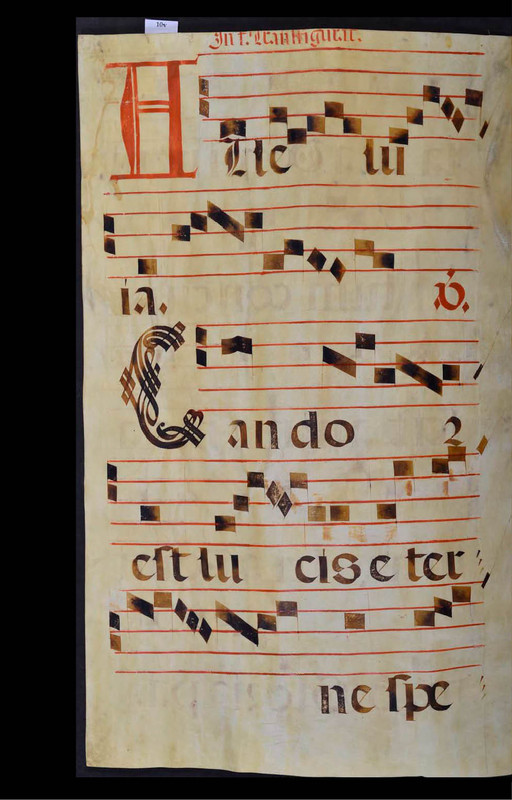 In f. Tranſfigurat.
A lle lu
ia. ℣.
C an do ꝛ
eſt lu cis e ter
ne ſpe